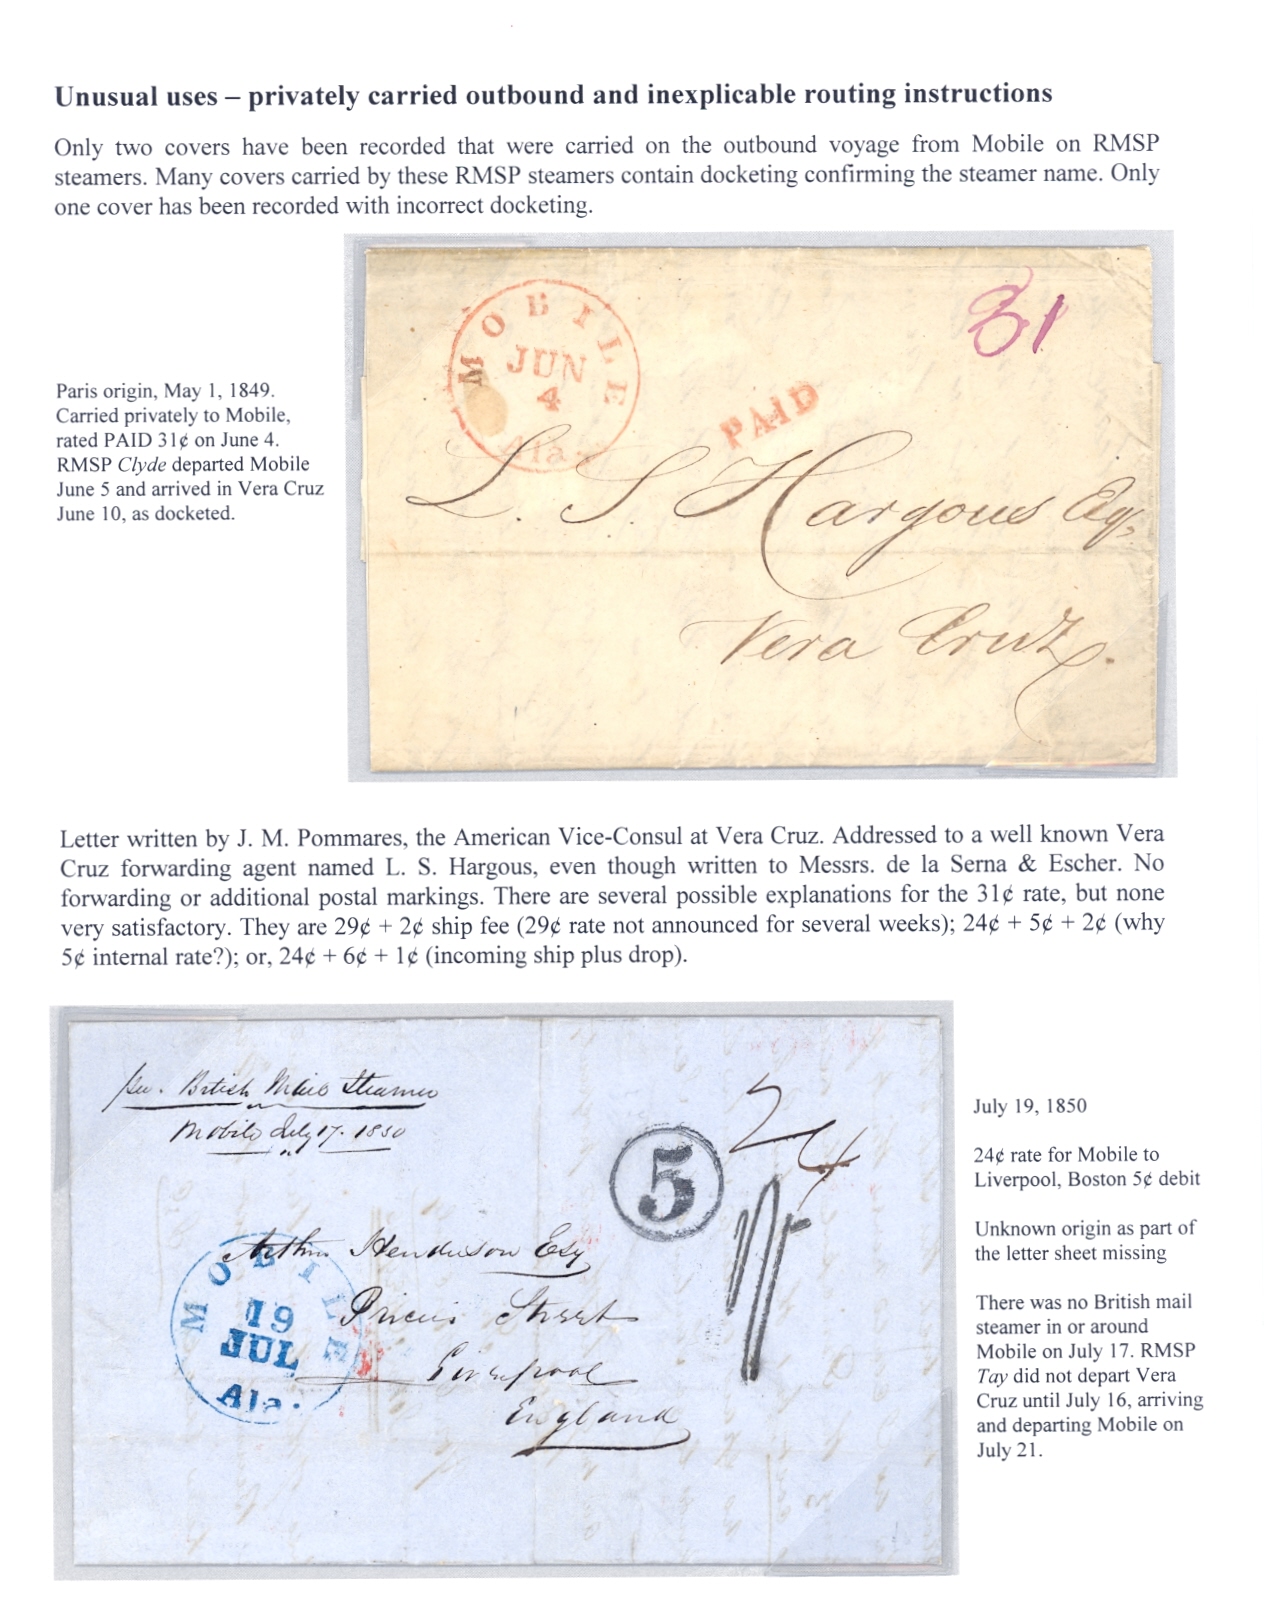 Unusual uses – privately carried outbound and inexplicable routing instructions
Only two covers have been recorded that were carried on the outbound voyage from Mobile on RMSP
steamers. Many covers carried by these RMSP steamers contain docketing confirming the steamer name. Only
one cover has been recorded with incorrect docketing.
Paris origin, May 1, 1849.
Carried privately to Mobile,
rated PAID 31¢ on June 4.
RMSP Clyde departed Mobile
June 5 and arrived in Vera Cruz
June 10, as docketed.
MOBILE
JUN
4
Ala.
31
PAID
L. S. Hargous Esq,
Vera Cruz.
Letter written by J. M. Pommares, the American Vice-Consul at Vera Cruz. Addressed to a well known Vera
Cruz forwarding agent named L. S. Hargous, even though written to Messrs. de la Serna & Escher. No
forwarding or additional postal markings. There are several possible explanations for the 31¢ rate, but none
very satisfactory. They are 29¢ + 2¢ ship fee (29¢ rate not announced for several weeks); 24¢ + 5¢ + 2¢ (why
5¢ internal rate?); or, 24¢ + 6¢ + 1¢ (incoming ship plus drop).
per. British Mail Steamer
Mobile July 17. 1850
24
5
Arthur Henderson Esq
Street
Liverpool
England
MOBILE
19
JUL
Ala.
July 19, 1850
24¢ rate for Mobile to
Liverpool, Boston 5¢ debit
Unknown origin as part of
the letter sheet missing
There was no British mail
steamer in or around
Mobile on July 17. RMSP
Tay did not depart Vera
Cruz until July 16, arriving
and departing Mobile on
July 21.